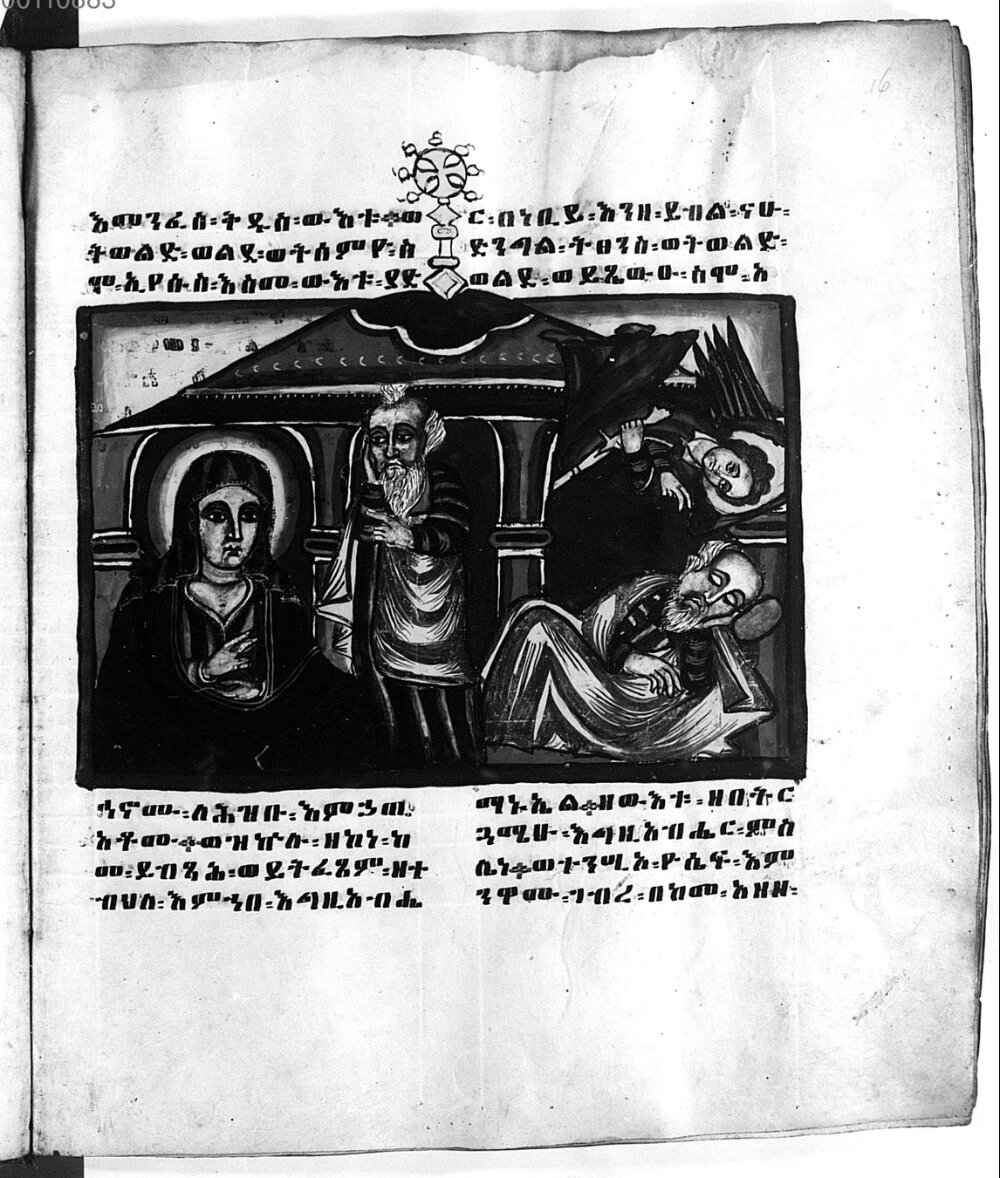 00110883
16
እመንፈስ፡ቅዱስ፡ውእቱ፨ወ
ትወልድ፡ወልደ፡ወትሰምዮ፡ስ
ሞ፡ኢየሱስ፡እስመ፡ውእቱ፡ያድ
ኅኖሙ፡ለሕዝቡ፡እምኃጢ
አቶሙ፨ወዝ ኵሉ፡ዘኮነ፡ከ
መ፡ይብጻሕ፡ወይትፈጸም፡ዘተ
ብህለ፡እምኀበ፡እግዚአብሔ
ር፡በነቢይ፡እንዘ፡ይብል፡ናሁ፡
ድንግል፡ትፀንስ፡ወትወልድ፡
ወልደ፡ወይጼውዑ፡ስሞ፡አ
ማኑኤል፨ዘውእቱ፡ዘበትር
ጓሜሁ፡እግዚአብሔር፡ምስ
ሌነ፨ወተንሢኦ፡ዮሴፍ፡እም
ንዋሙ፡ገብረ፡በከመ፡አዘዞ፡